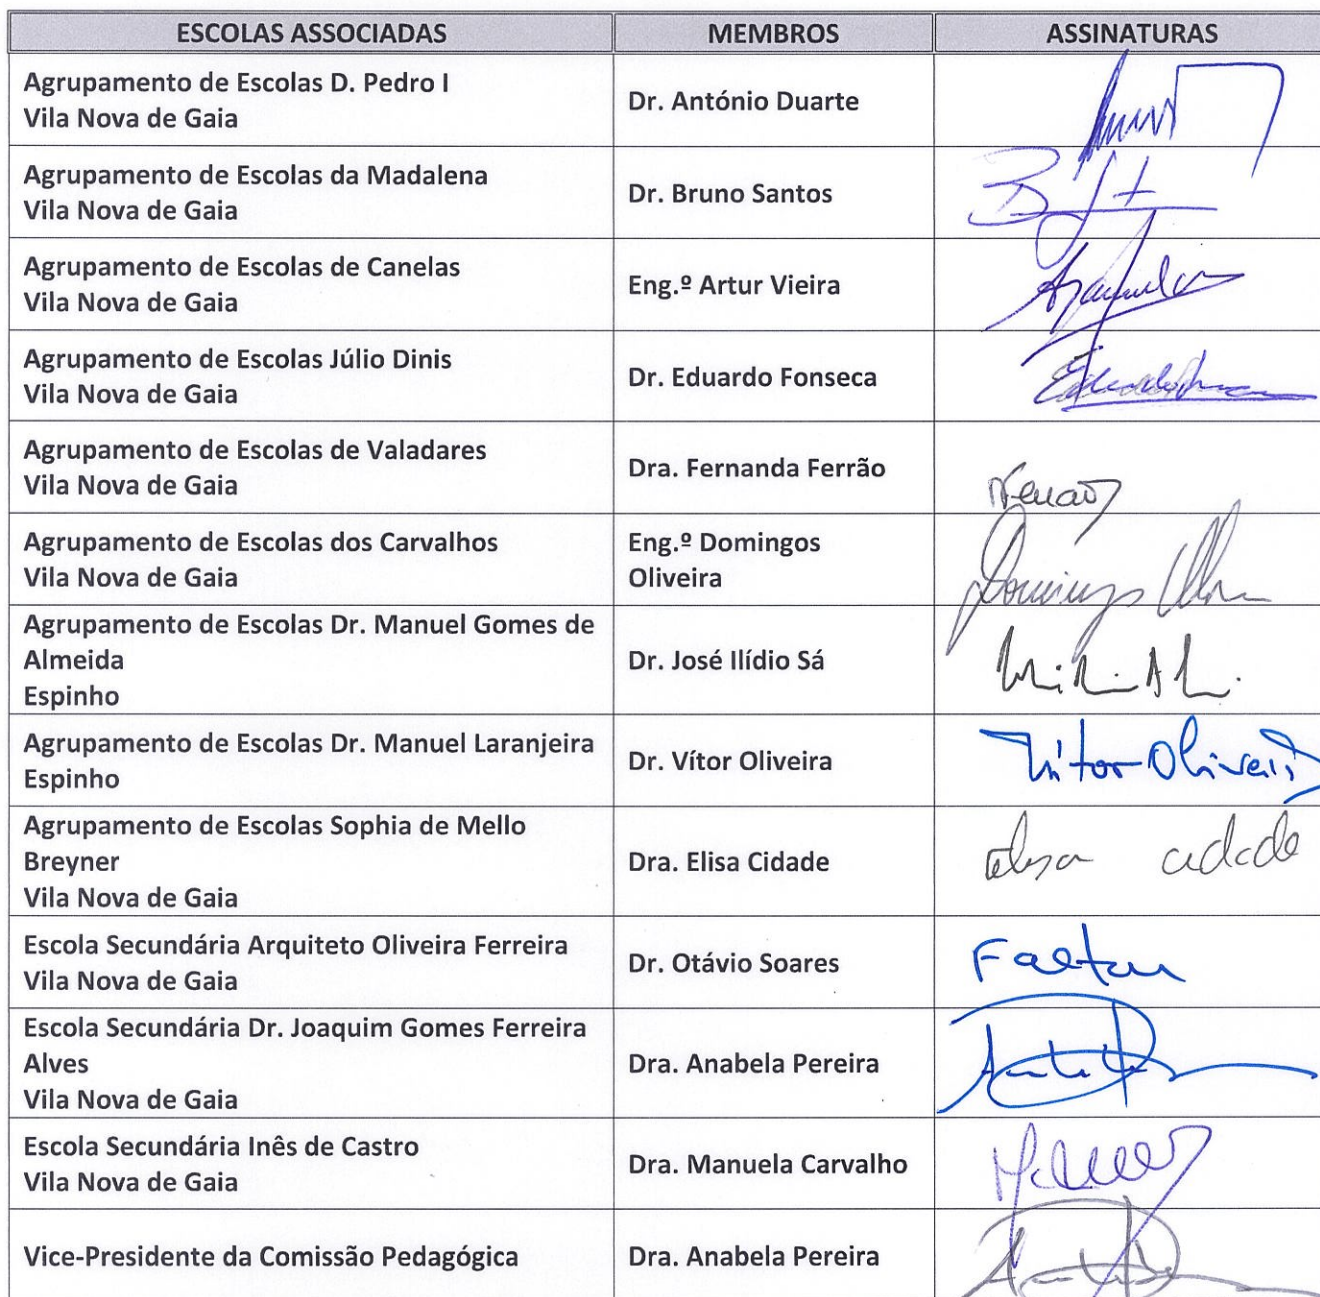 ESCOLAS ASSOCIADAS MEMBROS ASSINATURAS
Agrupamento de Escolas D. Pedro I
Vila Nova de Gaia
Dr. António Duarte
Agrupamento de Escolas da Madalena
Vila Nova de Gaia
Dr. Bruno Santos
Agrupamento de Escolas de Canelas
Vila Nova de Gaia
Eng.º Artur Vieira
Agrupamento de Escolas Júlio Dinis
Vila Nova de Gaia
Dr. Eduardo Fonseca
Agrupamento de Escolas de Valadares
Vila Nova de Gaia
Dra. Fernanda Ferrão
Agrupamento de Escolas dos Carvalhos
Vila Nova de Gaia
Eng.º Domingos
Oliveira
Domingos
Agrupamento de Escolas Dr. Manuel Gomes de
Almeida
Espinho
Dr. José Ilídio Sá
Agrupamento de Escolas Dr. Manuel Laranjeira
Espinho
Dr. Vítor Oliveira
Vítor Oliveira
Agrupamento de Escolas Sophia de Mello
Breyner
Vila Nova de Gaia
Dra. Elisa Cidade
Elisa cidade
Escola Secundária Arquiteto Oliveira Ferreira
Vila Nova de Gaia
Dr. Otávio Soares
Escola Secundária Dr. Joaquim Gomes Ferreira
Alves
Vila Nova de Gaia
Dra. Anabela Pereira
Escola Secundária Inês de Castro
Vila Nova de Gaia
Dra. Manuela Carvalho
Vice-Presidente da Comissão Pedagógica
Dra. Anabela Pereira